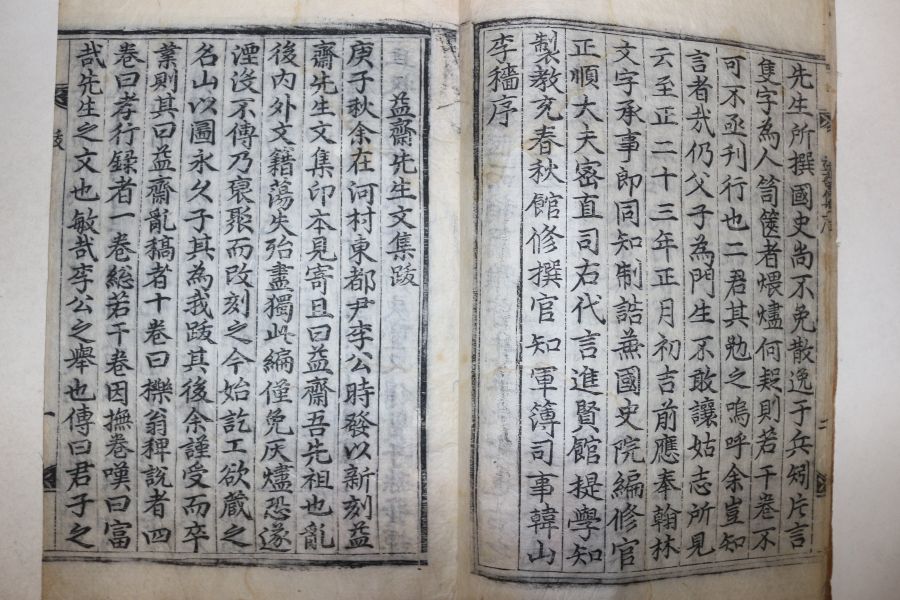 先生所撰國史尚不免散逸于兵矧片言
隻字為人笥篋者煨燼何疑則若干卷不
可不亟刊行也二君其勉之嗚呼余豈知
言者哉仍父子為門生不敢讓姑志所見
云至正二十三年正月初吉前應奉翰林
文字承事郎同知制誥兼國史院編修官
正順大夫密直司右代言進賢館提學知
製教充春秋館修撰官知軍簿司事韓山
李穡序
益齋先生文集跋
庚子秋余在河村東都尹李公時發以新刻益
齋先生文集印本見寄且曰益齋吾先祖也亂
後內外文籍蕩失殆盡獨此編僅免灰燼恐遂
湮沒不傳乃裒聚而改刻之今始訖工欲藏之
名山以圖永久子其為我跋其後余謹受而卒
業則其曰益齋亂稿者十卷曰櫟翁稗說者四
卷曰孝行錄者一卷總若干卷因撫卷嘆曰富
哉先生之文也敏哉李公之舉也傳曰君子之